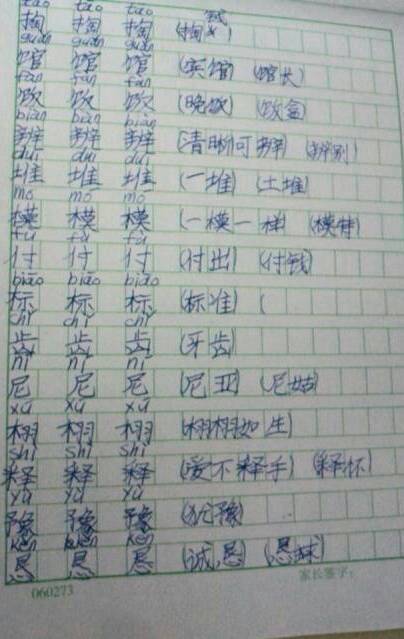 tāo tāo tāo
掏 掏 掏 (掏钱)
guǎn guǎn guǎn
馆 馆 馆 (宾馆) (馆长)
fàn fàn fàn
饭 饭 饭 (晚饭) (饭盒)
biàn biàn biàn
辨 辨 辨 (清晰可辨) (辨别)
duī duī duī
堆 堆 堆 (一堆) (土堆)
mó mó mó
模 模 模 (一模一样) (模特)
fù fù fù
付 付 付 (付出) (付钱)
biāo biāo biāo
标 标 标 (标准) (
chǐ chǐ chǐ
齿 齿 齿 (牙齿)
ní ní ní
尼 尼 尼 (尼亚) (尼姑)
xǔ xǔ xǔ
栩 栩 栩 (栩栩如生)
shì shì shì
释 释 释 (爱不释手) (释怀)
yù yù yù
豫 豫 豫 (犹豫)
kěn kěn kěn
恳 恳 恳 (诚恳) (恳求)
060273 家长签字: